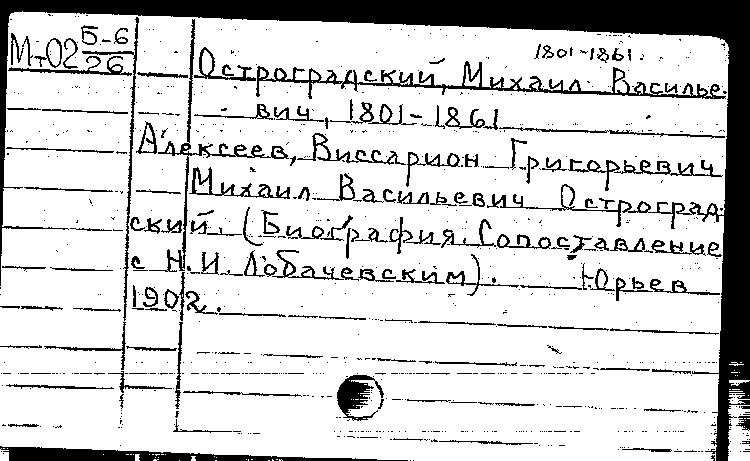 1801-1861.
Мт02 Б-6/26
Остроградский, Михаил Василье-
вич, 1801-1861
Алексеев, Виссарион Григорьевич
Михаил Васильевич Остроград-
ский. (Биография. Сопоставление
с Н.И. Лобачевским). Юрьев
1902.